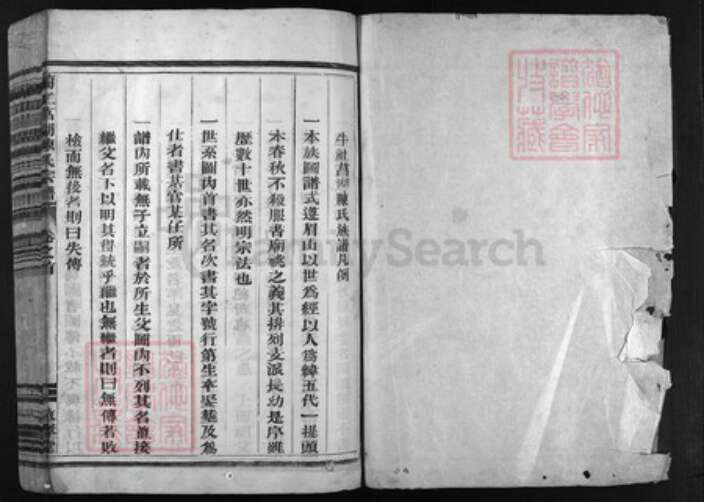 陳氏族譜凡例
一本族圖譜式遵眉山以世為經以人為緯五代一提頭
本春秋不殺服者廟祧之義其排列支派長幼是序雖
歷數十世亦然明宗法也
一世系圖內首書其名次書其字號行第生卒娶葬及為
仕者書某官某任所
一譜內所載無子立嗣者於所生父圖內不列其名直接
繼父名下以明其得統乎繼也無繼者則曰無傳者敗
檢而無後者則曰失傳
FamilySearch